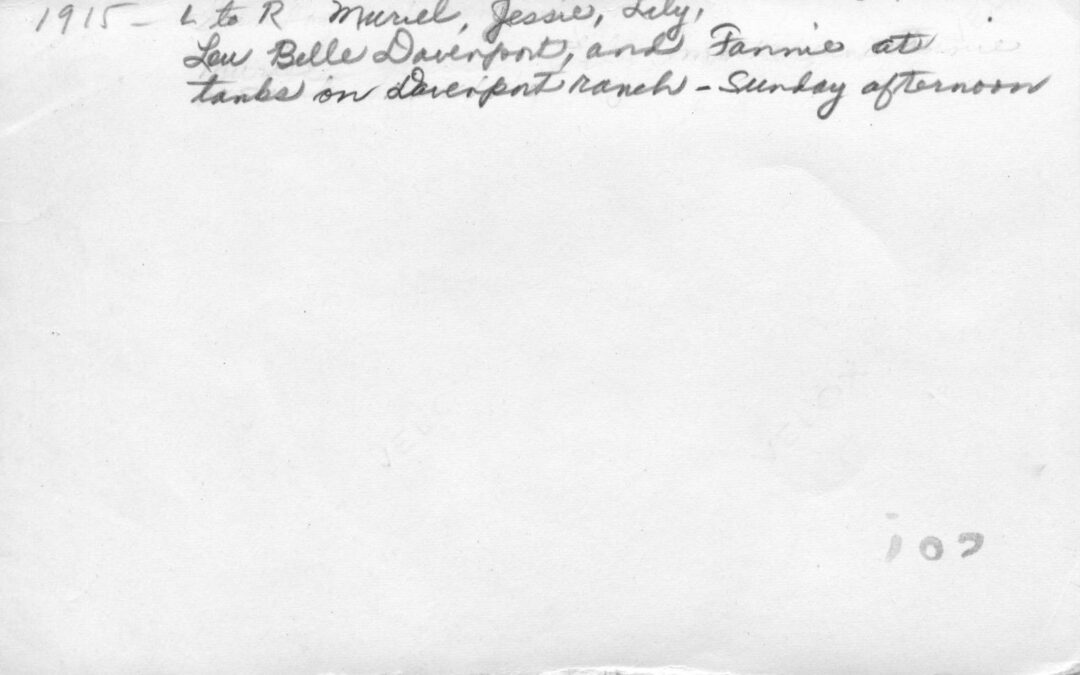 1915 - L to R Muriel, Jessie, Lily,
Lou Belle Davenport, and Fannie at
tanks on Davenport ranch - Sunday afternoon
VELOX
107